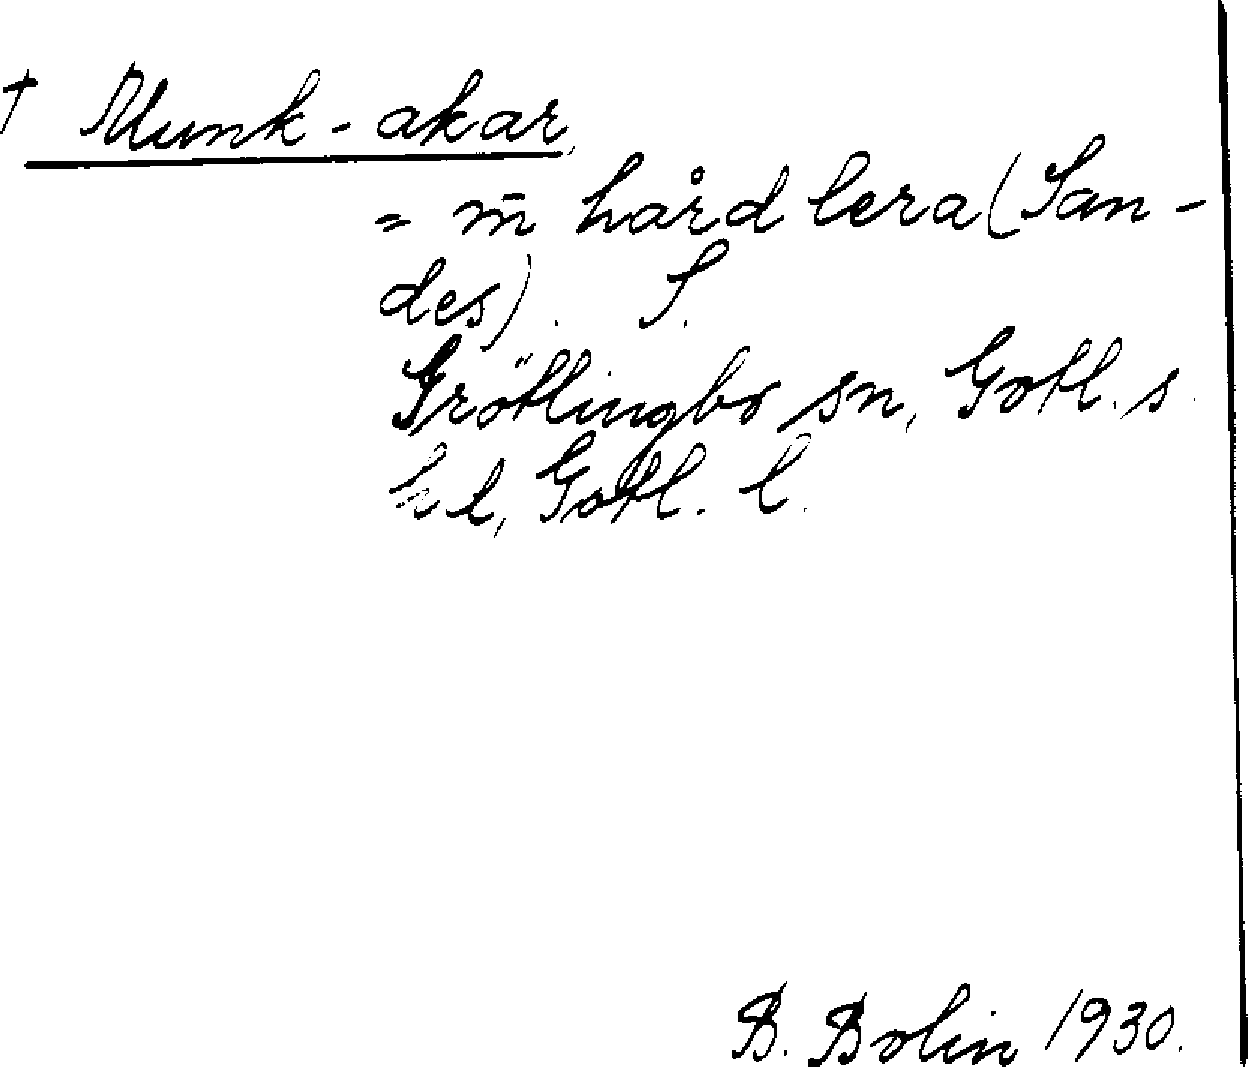 † Munk-akar
= m̄ hård lera (San-
des). S.
Grötlingbo sn, Gotl. s.
hd, Gotl. l.
B. Bolin 1930.